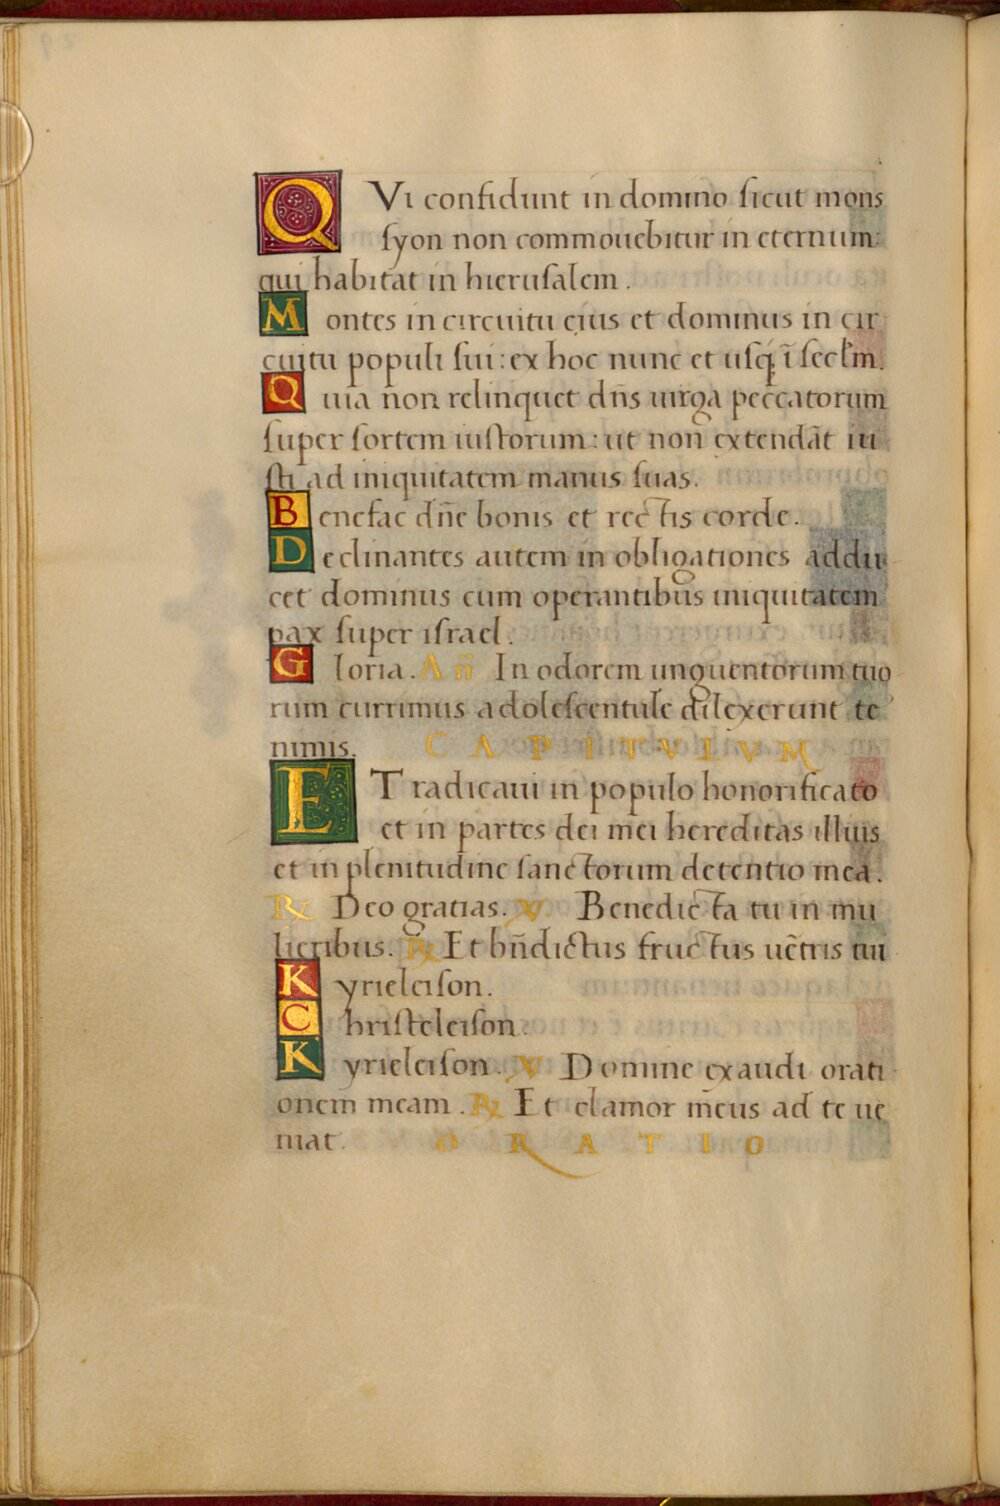 QVi confidunt in domino sicut mons
syon non commouebitur in eternum:
qui habitat in hierusalem.
Montes in circuitu eius et dominus in cir
cuitu populi sui: ex hoc nunc et usq̨ ĩ secl̃m.
Quia non relinquet dñs uirga peccatorum
super sortem iustorum: ut non extendãt iu
sti ad iniquitatem manus suas.
Benefac dñe bonis et rectis corde.
Declinantes autem in obligationes addu
cet dominus cum operantibus iniquitatem
pax super israel.
Gloria. Añ In odorem unguentorum tuo
rum currimus adolescentule dilexerunt te
nimis. CAPITVLVM
ET radicaui in populo honorificato
et in partes dei mei hereditas illius
et in plenitudine sanctorum detentio mea.
℞ Deo gratias. V. Benedicta tu in mu
lieribus. ℞ Et bñdictus fructus uẽtris tui
Kyrieleison.
Christeleison.
Kyrieleison. V. Domine exaudi orati
onem meam. ℞ Et clamor meus ad te ue
niat. ORATIO